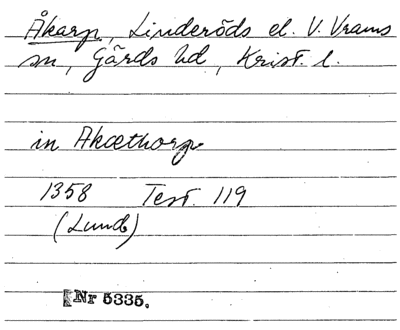 Åkarp, Linderöds el. V. Vrams
sn, Gärds hd, Krist. l.
in Akæthorp
1358 Test. 119
(Lund)
Nr 5335.